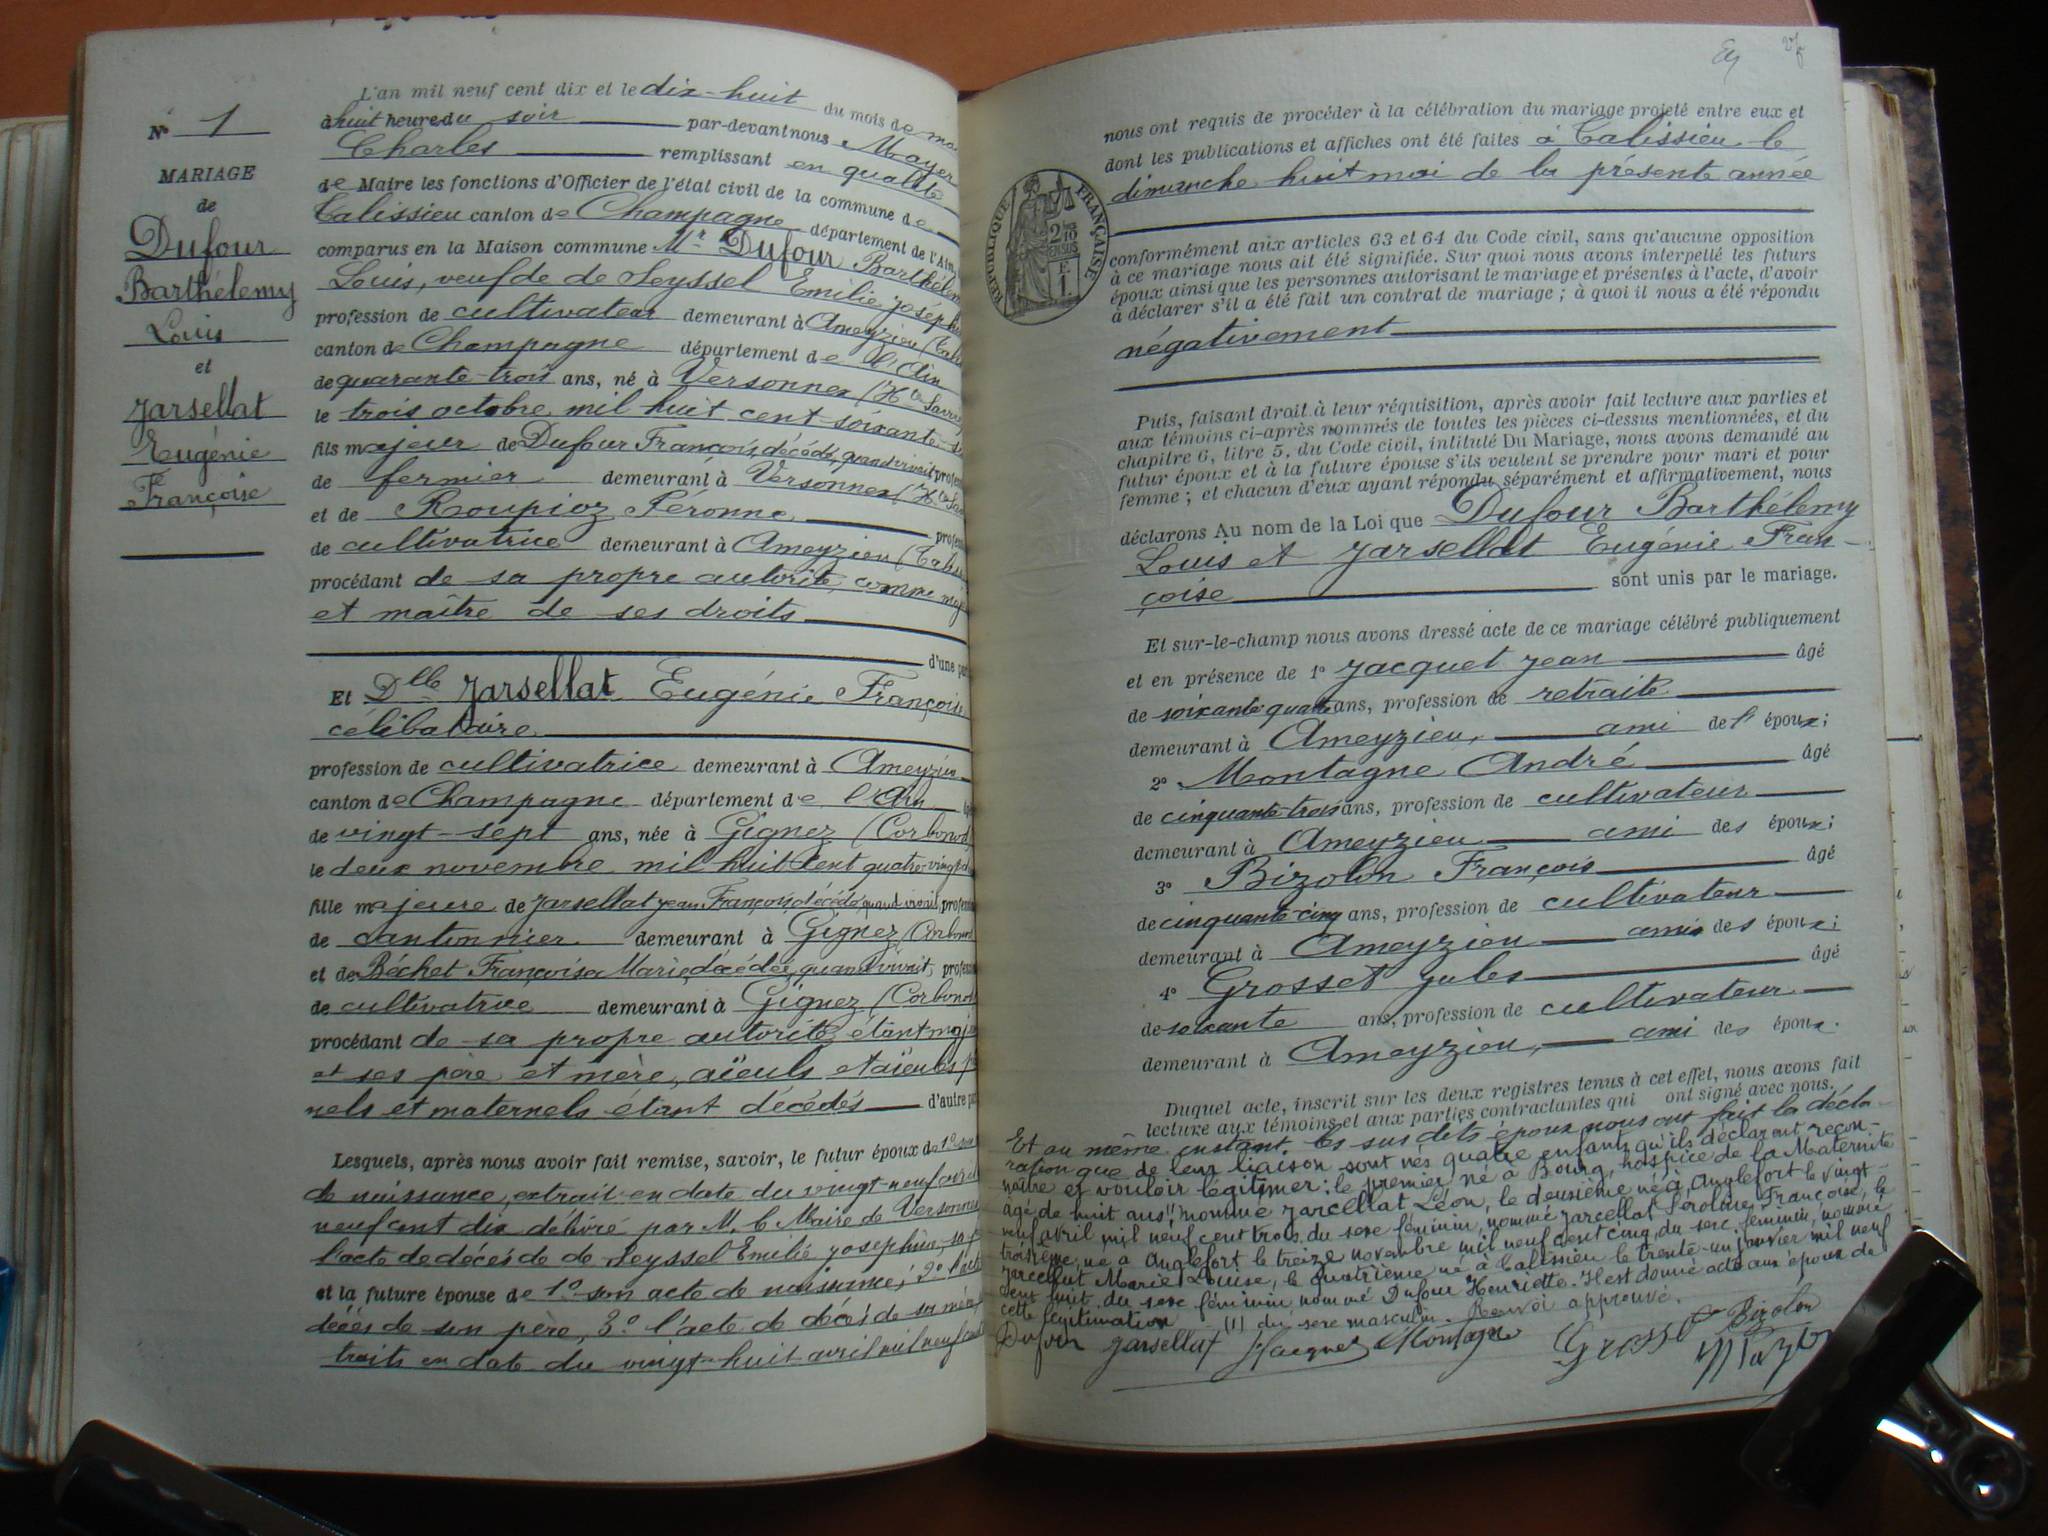 Nº 1
MARIAGE
de
Dufour
Barthélemy
Louis
et
Jarsellat
Eugénie
Françoise
L'an mil neuf cent dix et le dix-huit du mois de
à huit heures du soir par-devant nous Mayer
Charles remplissant en qualité
de Maire les fonctions d'Officier de l'état civil de la commune de
Talissieu canton de Champagne département de l'Ain
comparus en la Maison commune Mr Dufour Barthélem
Louis, veuf de de Seyssel Emilie Joséph
profession de cultivateur demeurant à Ameyzieu (Talis
canton de Champagne département de l'Ain
de quarante-trois ans, né à Versonnex (Hte Savoie
le trois octobre mil huit cent soixante-s
fils majeur de Dufour François, décédé, quand vivait profes
de fermier demeurant à Versonnex (Hte Sa
et de Roupioz Péronne profes
de cultivatrice demeurant à Ameyzieu (Talis
procédant de sa propre autorité, comme maj
et maître de ses droits
d'une par
Et Dlle Jarsellat Eugénie Françoise
célibataire
profession de cultivatrice demeurant à Ameyzieu
canton de Champagne département de l'Ain
de vingt-sept ans, née à Gignez (Corbonod
le deux novembre mil huit cent quatre-vingt-d
fille majeure de Jarsellat Jean François, décédé quand vivait, profess
de cantonnier demeurant à Gignez (Corbono
et de Béchet Françoise Marie, décédée, quand vivait, profess
de cultivatrice demeurant à Gignez (Corbonod
procédant de sa propre autorité étant maje
et ses père et mère, aïeuls et aïeules p
nels et maternels étant décédés d'autre par
Lesquels, après nous avoir fait remise, savoir, le futur époux de 1º son
de naissance, extrait en date du vingt-neuf avril
neuf cent dix délivré par M. le Maire de Versonnex
l'acte de décès de de Seyssel Emilie Joséphine, sa
et la future épouse de 1º son acte de naissance; 2º l'acte
décès de son père, 3º l'acte de décès de sa mère
traits en date du vingt-huit avril mil neuf cent
nous ont requis de procéder à la célébration du mariage projeté entre eux et
dont les publications et affiches ont été faites à Talissieu le
dimanche huit mai de la présente année
RÉPUBLIQUE FRANÇAISE
2/10
EN SUS
F.
1.
conformément aux articles 63 et 64 du Code civil, sans qu'aucune opposition
à ce mariage nous ait été signifiée. Sur quoi nous avons interpellé les futurs
époux ainsi que les personnes autorisant le mariage et présentes à l'acte, d'avoir
à déclarer s'il a été fait un contrat de mariage; à quoi il nous a été répondu
négativement
Puis, faisant droit à leur réquisition, après avoir fait lecture aux parties et
aux témoins ci-après nommés de toutes les pièces ci-dessus mentionnées, et du
chapitre 6, titre 5, du Code civil, intitulé Du Mariage, nous avons demandé au
futur époux et à la future épouse s'ils veulent se prendre pour mari et pour
femme; et chacun d'eux ayant répondu séparément et affirmativement, nous
déclarons Au nom de la Loi que Dufour Barthélemy
Louis et Jarsellat Eugénie Fran-
çoise sont unis par le mariage.
Et sur-le-champ nous avons dressé acte de ce mariage célébré publiquement
et en présence de 1º Jacquet Jean âgé
de soixante quatre ans, profession de retraité
demeurant à Ameyzieu, ami de l'époux;
2º Montagne André âgé
de cinquante-trois ans, profession de cultivateur
demeurant à Ameyzieu ami des époux;
3º Bizolon François âgé
de cinquante-cinq ans, profession de cultivateur
demeurant à Ameyzieu ami des époux;
4º Grosset Jules âgé
de soixante ans, profession de cultivateur
demeurant à Ameyzieu, ami des époux.
Duquel acte, inscrit sur les deux registres tenus à cet effet, nous avons fait
lecture aux témoins et aux parties contractantes qui ont signé avec nous.
Et au même instant, les sus dits époux nous ont fait la décla-
ration que de leur liaison sont nés quatre enfants qu'ils déclarent recon-
naître et vouloir légitimer: le premier né à Bourg, hospice de la Maternité
âgé de huit ans (1) nommé Jarcellat Léon, le deuxième né à Anglefort le vingt-
neuf avril mil neuf cent trois du sexe féminin, nommé Jarcellat Françoise, le
troisième, né à Anglefort le treize novembre mil neuf cent cinq du sexe féminin, nommé
Jarcellat Marie Louise, le quatrième né à Talissieu le trente-un janvier mil neuf
cent huit du sexe féminin nommé Dufour Henriette. Il est donné acte aux époux de
cette légitimation (1) du sexe masculin. Renvoi approuvé.
Dufour Jarsellat Jacquet Montagne Grosset Bizolon
Mayer